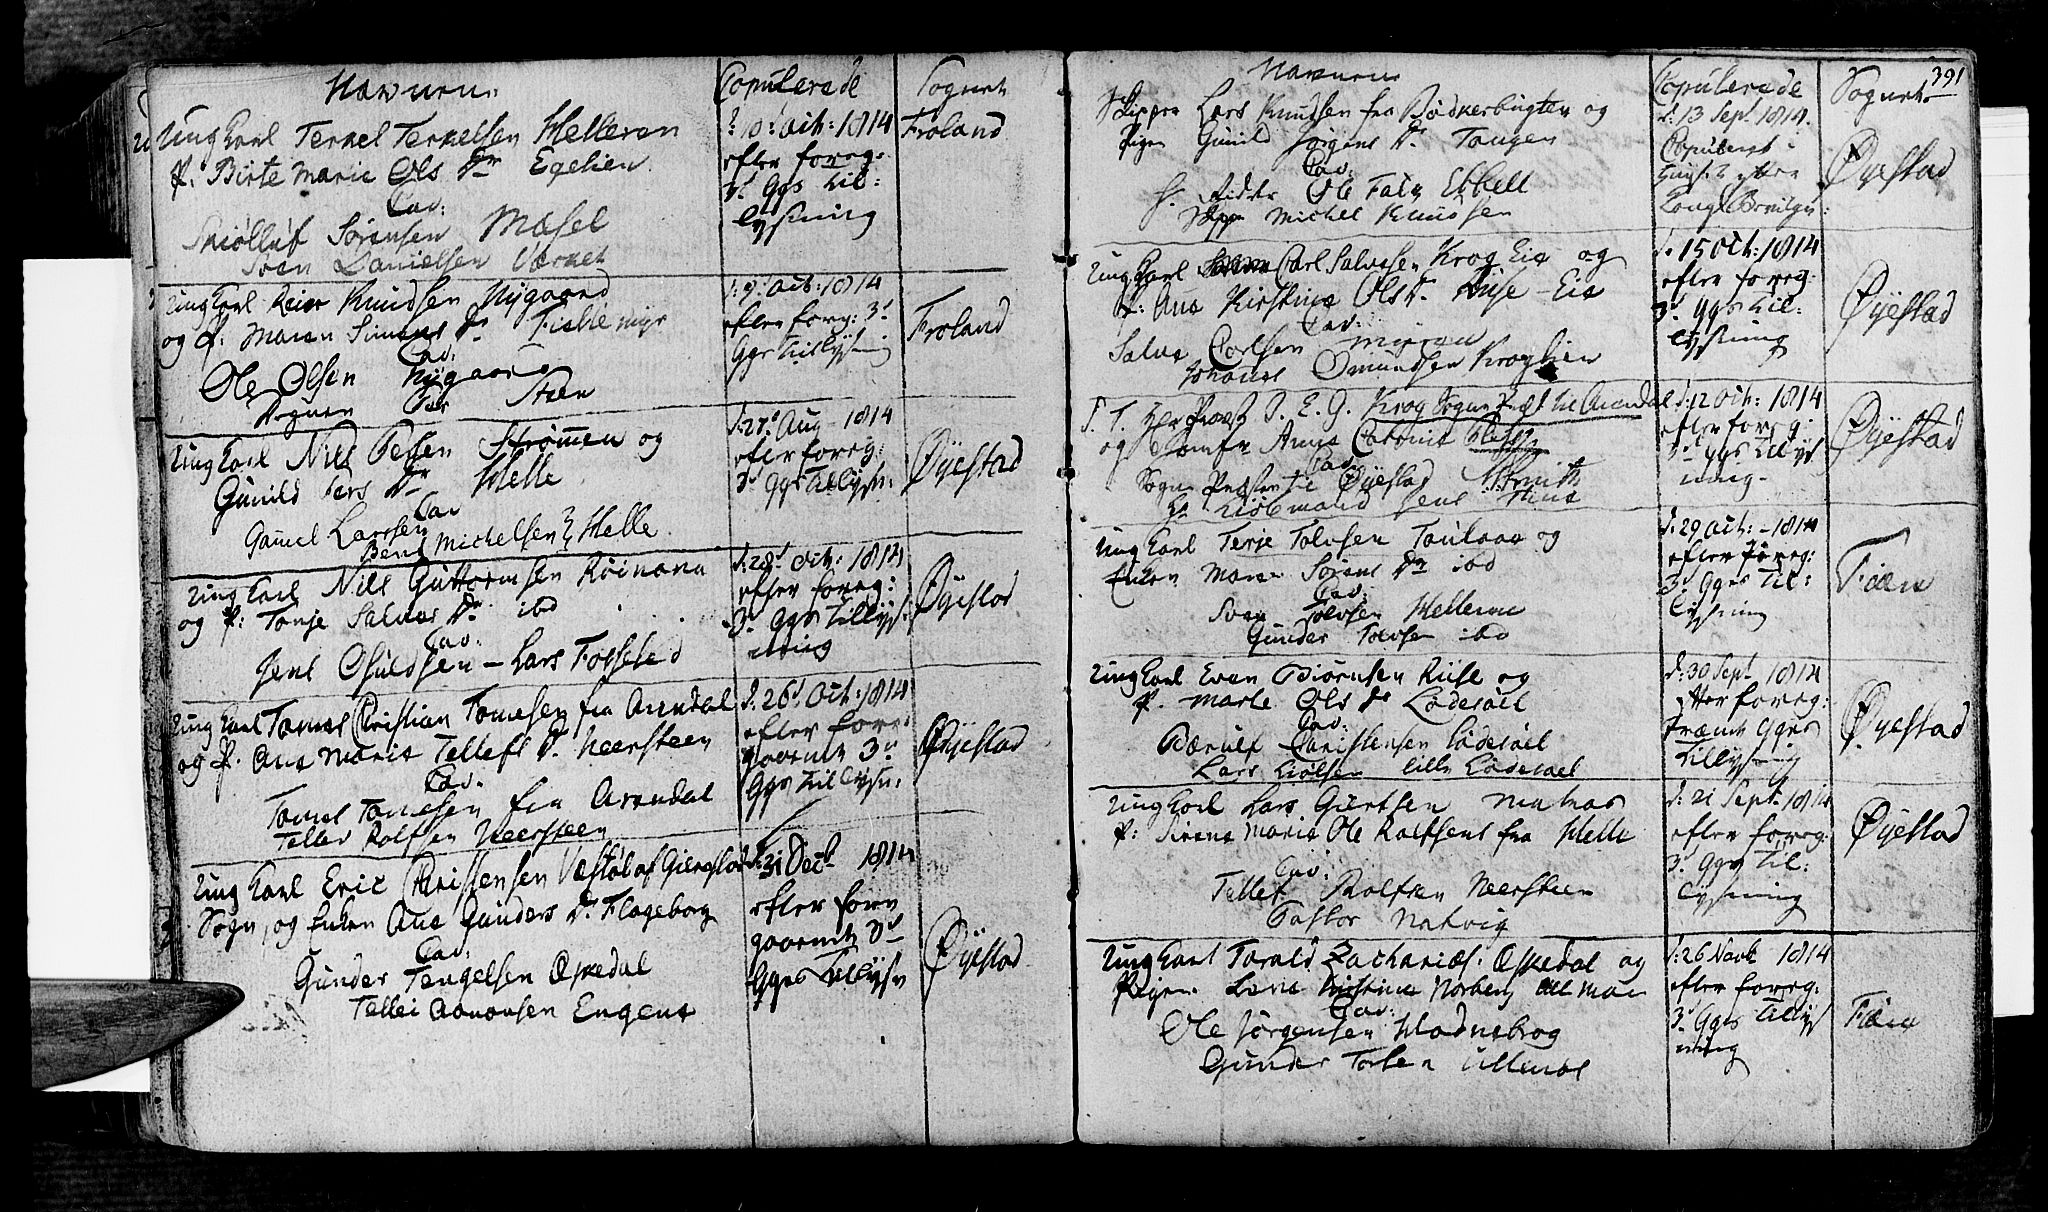 Navnene
Copulerede
Sognet
Ung Karl Terkel Terkelsen Helleren
P: Birte Marie Ols Dr Egelien
Cav:
Sniøllúf Sörensen Mæsel
Sven Danielsen Værket
d: 10: Oct: 1814
efter foreg:
3de Ggs til:
lysning
Froland
Ung Karl Reier Knudsen Nygaard
og P: Maren Simens Dr Fiskemyr
Cav:
Ole Olsen Nygaard
d: 9: Oct: 1814
efter foreg: 3d
Ggs Tillysning
Froland
Ung Karl Niels Persen Strømmen og
Gunild Lars Dr Helle
Cav
Gamel Larssen
Bent Michelsen Helle
d: 27de Aug 1814
efter foreg:
3d Ggs Tillysn:
Øyestad
Ung Karl Niels Guttormsen Röinana
og P: Tonje Salves Dr ibd
Cav:
Jens Osuldsen - Lars Fosselid
d: 28d Oct: 1814
efter foreg:
3. Ggs Tillys
ning
Øyestad
Ung Karl Tomes Christian Tomesen fra Arendal
og P. Ane Marie Tellefs D. Neersteen
Cav.
Tomes Tomesen fra Arendal
Tellev Rolfsen Neersteen
d: 26d Oct: 1814
efter fore
gaaende 3de
Ggs Tillysn:
Øyestad
Ung Karl Eric Christensen Vestöl af Gierestad
Sogn, og Enken Ane Gunders Dr Flageborg
Cav:
Gunder Tengelsen Espedal
Tellef Aanonsen Engene
d: 31 Decb 1814
efter fore
gaaende 3de
Ggs Tillysn
Øyestad
391
Navnene
Copulerede
Sognet
Skipper Lars Knudsen fra Bödkerbugten og
Pigen Gunild Jörgens Dr Tangen
Cav:
H. Ridder Ole Falk Ebbell
Skipp Michel Knudsen
d: 13 Sept 1814.
Copuleret i
Huuset efter
Kong: Bevilgn:
Øyestad
Ung Karl Carl Salvesen Krog Eie og
P: Ane Kirstine Ols Dr. Ruse Eie
Cav:
Salve Carlsen Myren
Johanes Omundsen Kroglien
d. 15 Oct: 1814
efter foreg:
3d Ggs til:
lysning
Øyestad
S. T. Her Provst P. E. G. Krog Sogne Præst til Arendal
og Jomfr Anne Catrine
Cav
Sogne Præsten til Øyestad Smith
Hr Kiöbmand Jens
d: 12 Oct: 1814
efter foreg:
3de Ggs Tillys
ning
Øyestad
Ung Karl Terje Tolvsen Toulaae og
Enken Maren Sörens Dr ibd
Cav:
Sven Tolvsen Hellerne
Gunder Tolvsen ibd
d: 29 Oct: 1814
efter foreg:
3d Ggs Til:
lysning
Fiæra
Ung Karl Even Biörnsen Ruse og
P. Marte Ols Dr Lödesöel
Cav:
Bærulf Christensen Lödesöel
Lars Kiölsen lille Lödesöel
d: 30 Sept 1814
etter foreg:
trænde Ggs
Tillysning
Øyestad
Ung Karl Lars Giertsen Natnes
P: Sirene Marie Ole Rolfsens fra Helle
Cav:
Tellef Rolfsen Neersteen
Pastor Natvig
d: 21 Sept. 1814
efter foreg:
3d Ggs Til:
lysning
Øyestad
Ung Karl Torald Zacharies: Espedal og
Pigen Lene Kirstine Norberg
Cav:
Ole Jörgensen Hodnebrog
Gunder Torsen Ullendal
d: 26 Novb 1814
efter foreg:
3d Ggs Tillys
ning
Fiære